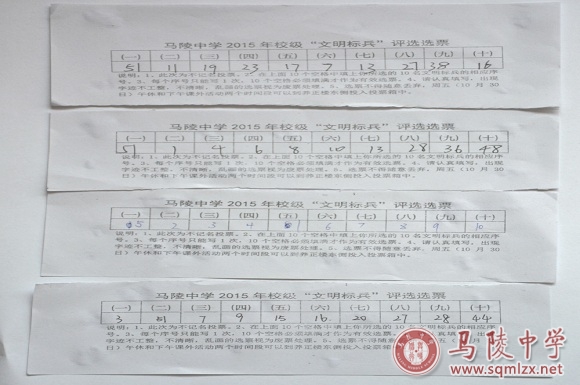 马陵中学2015年校级“文明标兵”评选选票
(一) (二) (三) (四) (五) (六) (七) (八) (九) (十)
5 1 19 23 17 7 13 27 38 16
说明:1、此次为不记名投票。2、在上面10个空格中填上你所选的10名文明标兵的相应序
号。3、每个序号只能写1次,10个空格必须填满才作为有效选票。4、请认真填写,出现
字迹不工整,不清晰,乱画的选票视为废票处理。5、选票不得随意丢弃,周五(10月30
日)午休和下午课外活动两个时间段可以到弈正楼东侧投入投票箱中。
马陵中学2015年校级“文明标兵”评选选票
(一) (二) (三) (四) (五) (六) (七) (八) (九) (十)
5 1 4 6 8 10 13 28 36 48
说明:1、此次为不记名投票。2、在上面10个空格中填上你所选的10名文明标兵的相应序
号。3、每个序号只能写1次,10个空格必须填满才作为有效选票。4、请认真填写,出现
字迹不工整,不清晰,乱画的选票视为废票处理。5、选票不得随意丢弃,周五(10月30
日)午休和下午课外活动两个时间段可以到弈正楼东侧投入投票箱中。
马陵中学2015年校级“文明标兵”评选选票
(一) (二) (三) (四) (五) (六) (七) (八) (九) (十)
2 3 4 6 7 8 9 10
说明:1、此次为不记名投票。2、在上面10个空格中填上你所选的10名文明标兵的相应序
号。3、每个序号只能写1次,10个空格必须填满才作为有效选票。4、请认真填写,出现
字迹不工整,不清晰,乱画的选票视为废票处理。5、选票不得随意丢弃,周五(10月30
日)午休和下午课外活动两个时间段可以到弈正楼东侧投入投票箱中。
马陵中学2015年校级“文明标兵”评选选票
(一) (二) (三) (四) (五) (六) (七) (八) (九) (十)
3 7 9 15 16 20 27 28 44
说明:1、此次为不记名投票。2、在上面10个空格中填上你所选的10名文明标兵的相应序
号。3、每个序号只能写1次,10个空格必须填满才作为有效选票。
字迹不工整,不清晰,乱画的选票视为废票处理。5、选票不得随
日)午休和下午课外活动两个时间段可以到弈正楼东侧投入投票箱
马陵中学
www.sqmlzx.net